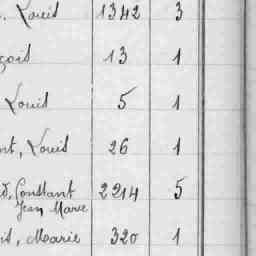 . Louis 1342 3
çois 13 1
Louis 5 1
nt, Louis 26 1
d, Constant 2214 5
Jean Marie
is, Marie 320 1